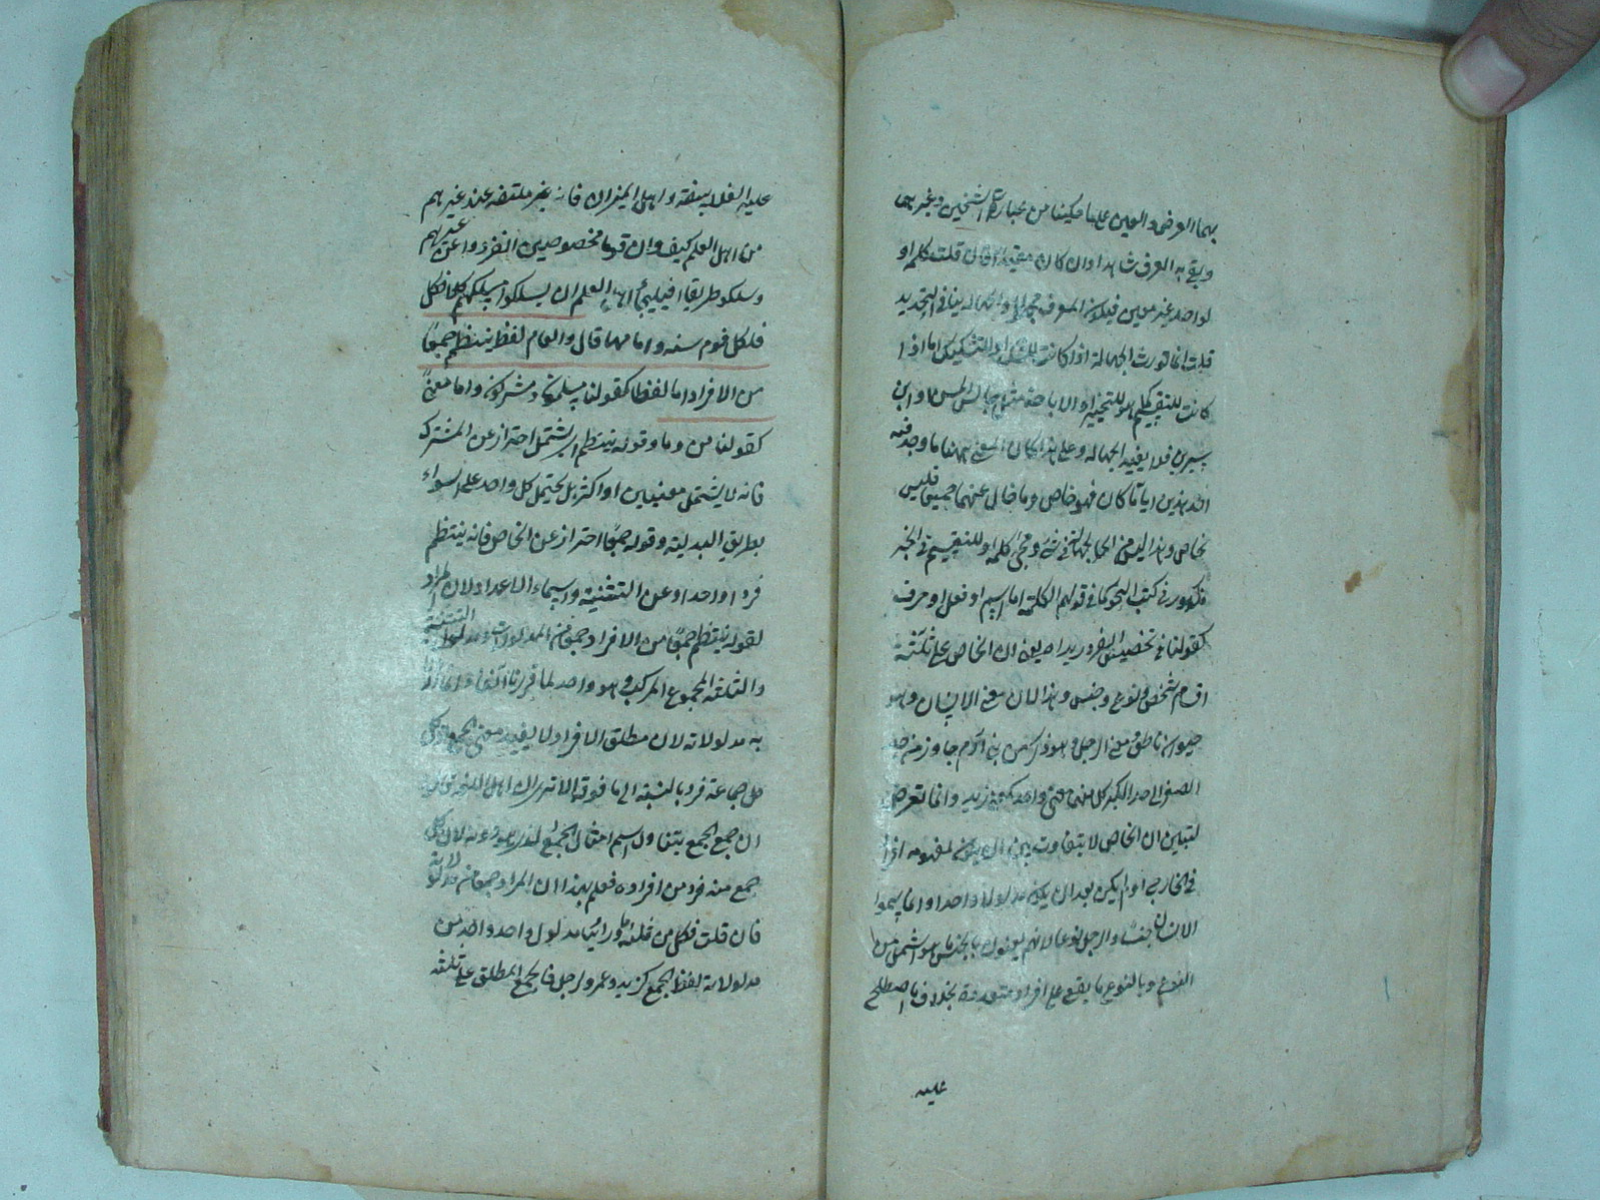 بهما العرض والعين على ما حكينا من عبارة الشيخين وغيرهما
وبقي به العرف شاهدا وان كان مقيدا فان قلت كلمة او
لواحد غير معين فيكون المعرف مجهولا والجهالة ينافي التحديد
قلت انما تورث الجهالة اذا كانت للشك او التشكيك اما اذا
كانت للتقسيم او للتخيير او الاباحة مثل جالس الحسن او ابن
سيرين فلا يفيد الجهالة وعلى هذا كان المعنى ههنا ما وجد فيه
احد هذين اياما كان فهو خاص وما خلا عنهما جميعا فليس
بخاص وهذا ليس من الجهالة في شئ ومجئ كلمة او للتقسيم في الخبر
مشهور في كتب النحو كما في قولهم الكلمة اما اسم او فعل او حرف
كقولنا في تخصيص الفرد يريد ان الخاص على ثلثة
اقسام شخص ونوع وجنس وهذا لان معنى الانسان وهو
حيوان ناطق ومعنى الرجل وهو ذكر من بني آدم جاوز من حد
الصغر الى حد الكبر كل منهما معنى واحد كمعنى زيد وانما تعرض
ليتبين ان الخاص لا يتفاوت بين ان يكون لمفهومه افراد
في الخارج او لم يكن بعد ان يكون مدلوله واحدا وانما سموا
الانسان جنسا والرجل نوعا لانهم يعنون بالجنس ما هو اشمل من
النوع وبالنوع ما يقع على افراد متعددة بخلاف ما اصطلح
عليه
عليه الفلاسفة واهل الميزان فانه غير ملتفت عند غيرهم
من اهل العلم كيف وان قوما مخصوصين انفردوا عن غيرهم
وسلكو طريقا افيلجأ اهل العلم ان يسلكوا مسلكهم كلا فكل
فلكل قوم سنة وامامها قال والعام لفظ ينتظم جمعا
من الافراد اما لفظا كقولنا مسلمون ومشركون واما معنى
كقولنا من وما وقوله ينتظم اى يشتمل احتراز عن المشترك
فانه لا يشتمل معنيين او اكثر بل يحتمل كل واحد على السواء
بطريق البدلية وقوله جمعا احتراز عن الخاص فانه ينتظم
فردا واحدا وعن التثنية واسماء الاعداد لان المراد
لقوله ينتظم جمعا من الافراد جمعا من المدلولات ومدلول التثنية
والثلثة المجموع المركب وهو واحد لما قررنا آنفا وانما اراد
به مدلولاته لان مطلق الافراد لا يفيد معنى الجمع فان كل
كل جماعة فرد بالنسبة الى ما فوقه الا ترى ان اهل اللغة
ان جمع الجمع يتناول اسم امثال الجمع لان كل
جمع منه فرد من افراده فعلم بهذا ان المراد جمعا من مدلولاته
فان قلت فكل من ثلثة مدلول واحد واحد من
مدلولات لفظ الجمع كزيد وعمرو لرجل فالجمع المطلق على ثلثة